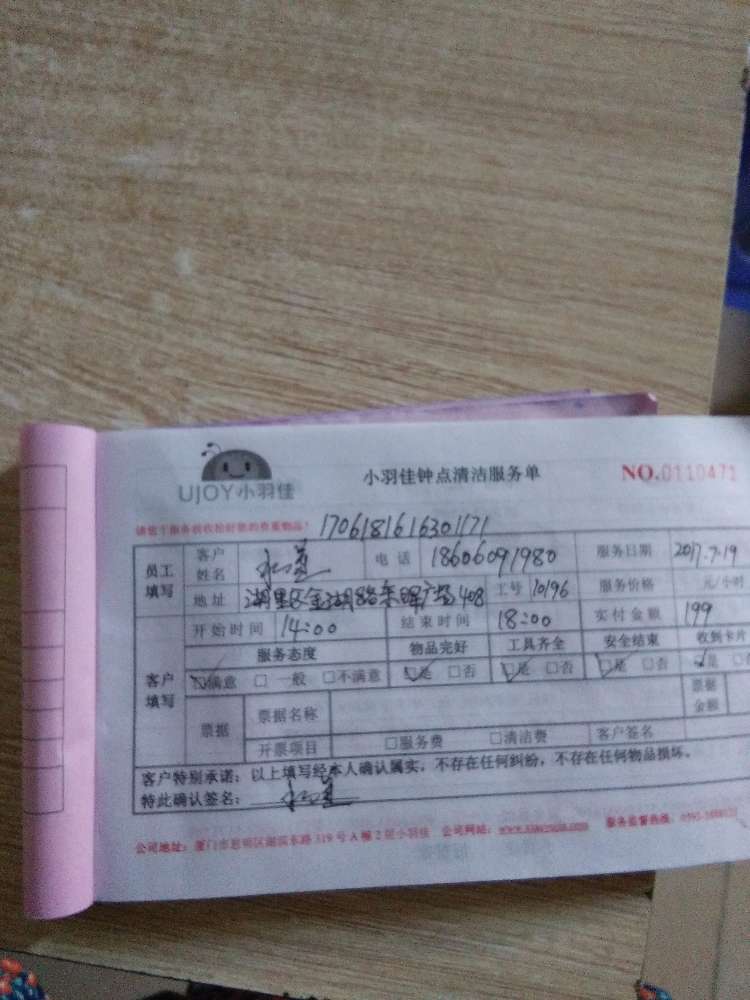 UJOY小羽佳 小羽佳钟点清洁服务单 NO.0110471
1706181616301171
员工填写 客户姓名 电话 18606091980 服务日期 2017.7.19
地址 湖里区金湖路 广场408 工号 10196 服务价格 元/小时
开始时间 14:00 结束时间 18:00 实付金额 199
客户填写 服务态度 物品完好 工具齐全 安全结束 收到卡片
☑满意 □一般 □不满意 ☑是 □否 ☑是 □否 ☑是 □否 ☑是 □
票据 票据名称 票据金额
开票项目 □服务费 □清洁费 客户签名
客户特别承诺:以上填写经本人确认属实,不存在任何纠纷,不存在任何物品损坏。
特此确认签名:
公司地址:厦门市思明区湖滨东路319号A幢2层小羽佳 公司网站: 服务监督热线: